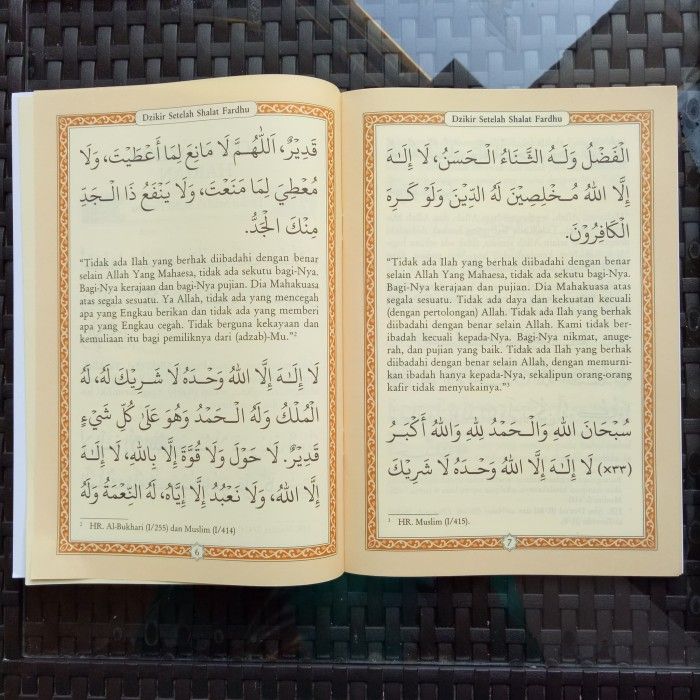 Dzikir Setelah Shalat Fardhu
قَدِيْرٌ، اَللّٰهُمَّ لَا مَانِعَ لِمَا أَعْطَيْتَ، وَلَا
مُعْطِيَ لِمَا مَنَعْتَ، وَلَا يَنْفَعُ ذَا الْـجَدِّ
مِنْكَ الْجَدُّ.
“Tidak ada Ilah yang berhak diibadahi dengan benar
selain Allah Yang Mahaesa, tidak ada sekutu bagi-Nya.
Bagi-Nya kerajaan dan bagi-Nya pujian. Dia Mahakuasa
atas segala sesuatu. Ya Allah, tidak ada yang mencegah
apa yang Engkau berikan dan tidak ada yang memberi
apa yang Engkau cegah. Tidak berguna kekayaan dan
kemuliaan itu bagi pemiliknya dari (adzab)-Mu.”²
لَا إِلٰـهَ إِلَّا اللهُ وَحْدَهُ لَا شَرِيْكَ لَهُ، لَهُ
الْمُلْكُ وَلَهُ الْـحَمْدُ وَهُوَ عَلَىٰ كُلِّ شَيْءٍ
قَدِيْرٌ. لَا حَوْلَ وَلَا قُوَّةَ إِلَّا بِاللهِ، لَا إِلٰـهَ
إِلَّا اللهُ، وَلَا نَعْبُدُ إِلَّا إِيَّاهُ، لَهُ النِّعْمَةُ وَلَهُ
² HR. Al-Bukhari (I/255) dan Muslim (I/414)
6
Dzikir Setelah Shalat Fardhu
الْفَضْلُ وَلَـهُ الثَّنَاءُ الْـحَسَنُ، لَا إِلٰـهَ
إِلَّا اللهُ مُـخْلِصِيْنَ لَهُ الدِّيْنَ وَلَوْ كَـرِهَ
الْكَافِرُوْنَ.
“Tidak ada Ilah yang berhak diibadahi dengan benar
selain Allah Yang Mahaesa, tidak ada sekutu bagi-Nya.
Bagi-Nya kerajaan dan pujian. Dia Mahakuasa atas
segala sesuatu. Tidak ada daya dan kekuatan kecuali
(dengan pertolongan) Allah. Tidak ada Ilah yang berhak
diibadahi dengan benar selain Allah. Kami tidak ber-
ibadah kecuali kepada-Nya. Bagi-Nya nikmat, anuge-
rah, dan pujian yang baik. Tidak ada Ilah yang berhak
diibadahi dengan benar selain Allah, dengan memurni-
kan ibadah hanya kepada-Nya, sekalipun orang-orang
kafir tidak menyukainya.”³
سُبْحَانَ اللهِ وَالْـحَمْدُ لِلهِ وَاللهُ أَكْبَـرُ
(٣٣×) لَا إِلٰـهَ إِلَّا اللهُ وَحْدَهُ لَا شَرِيْكَ
³ HR. Muslim (I/415).
7